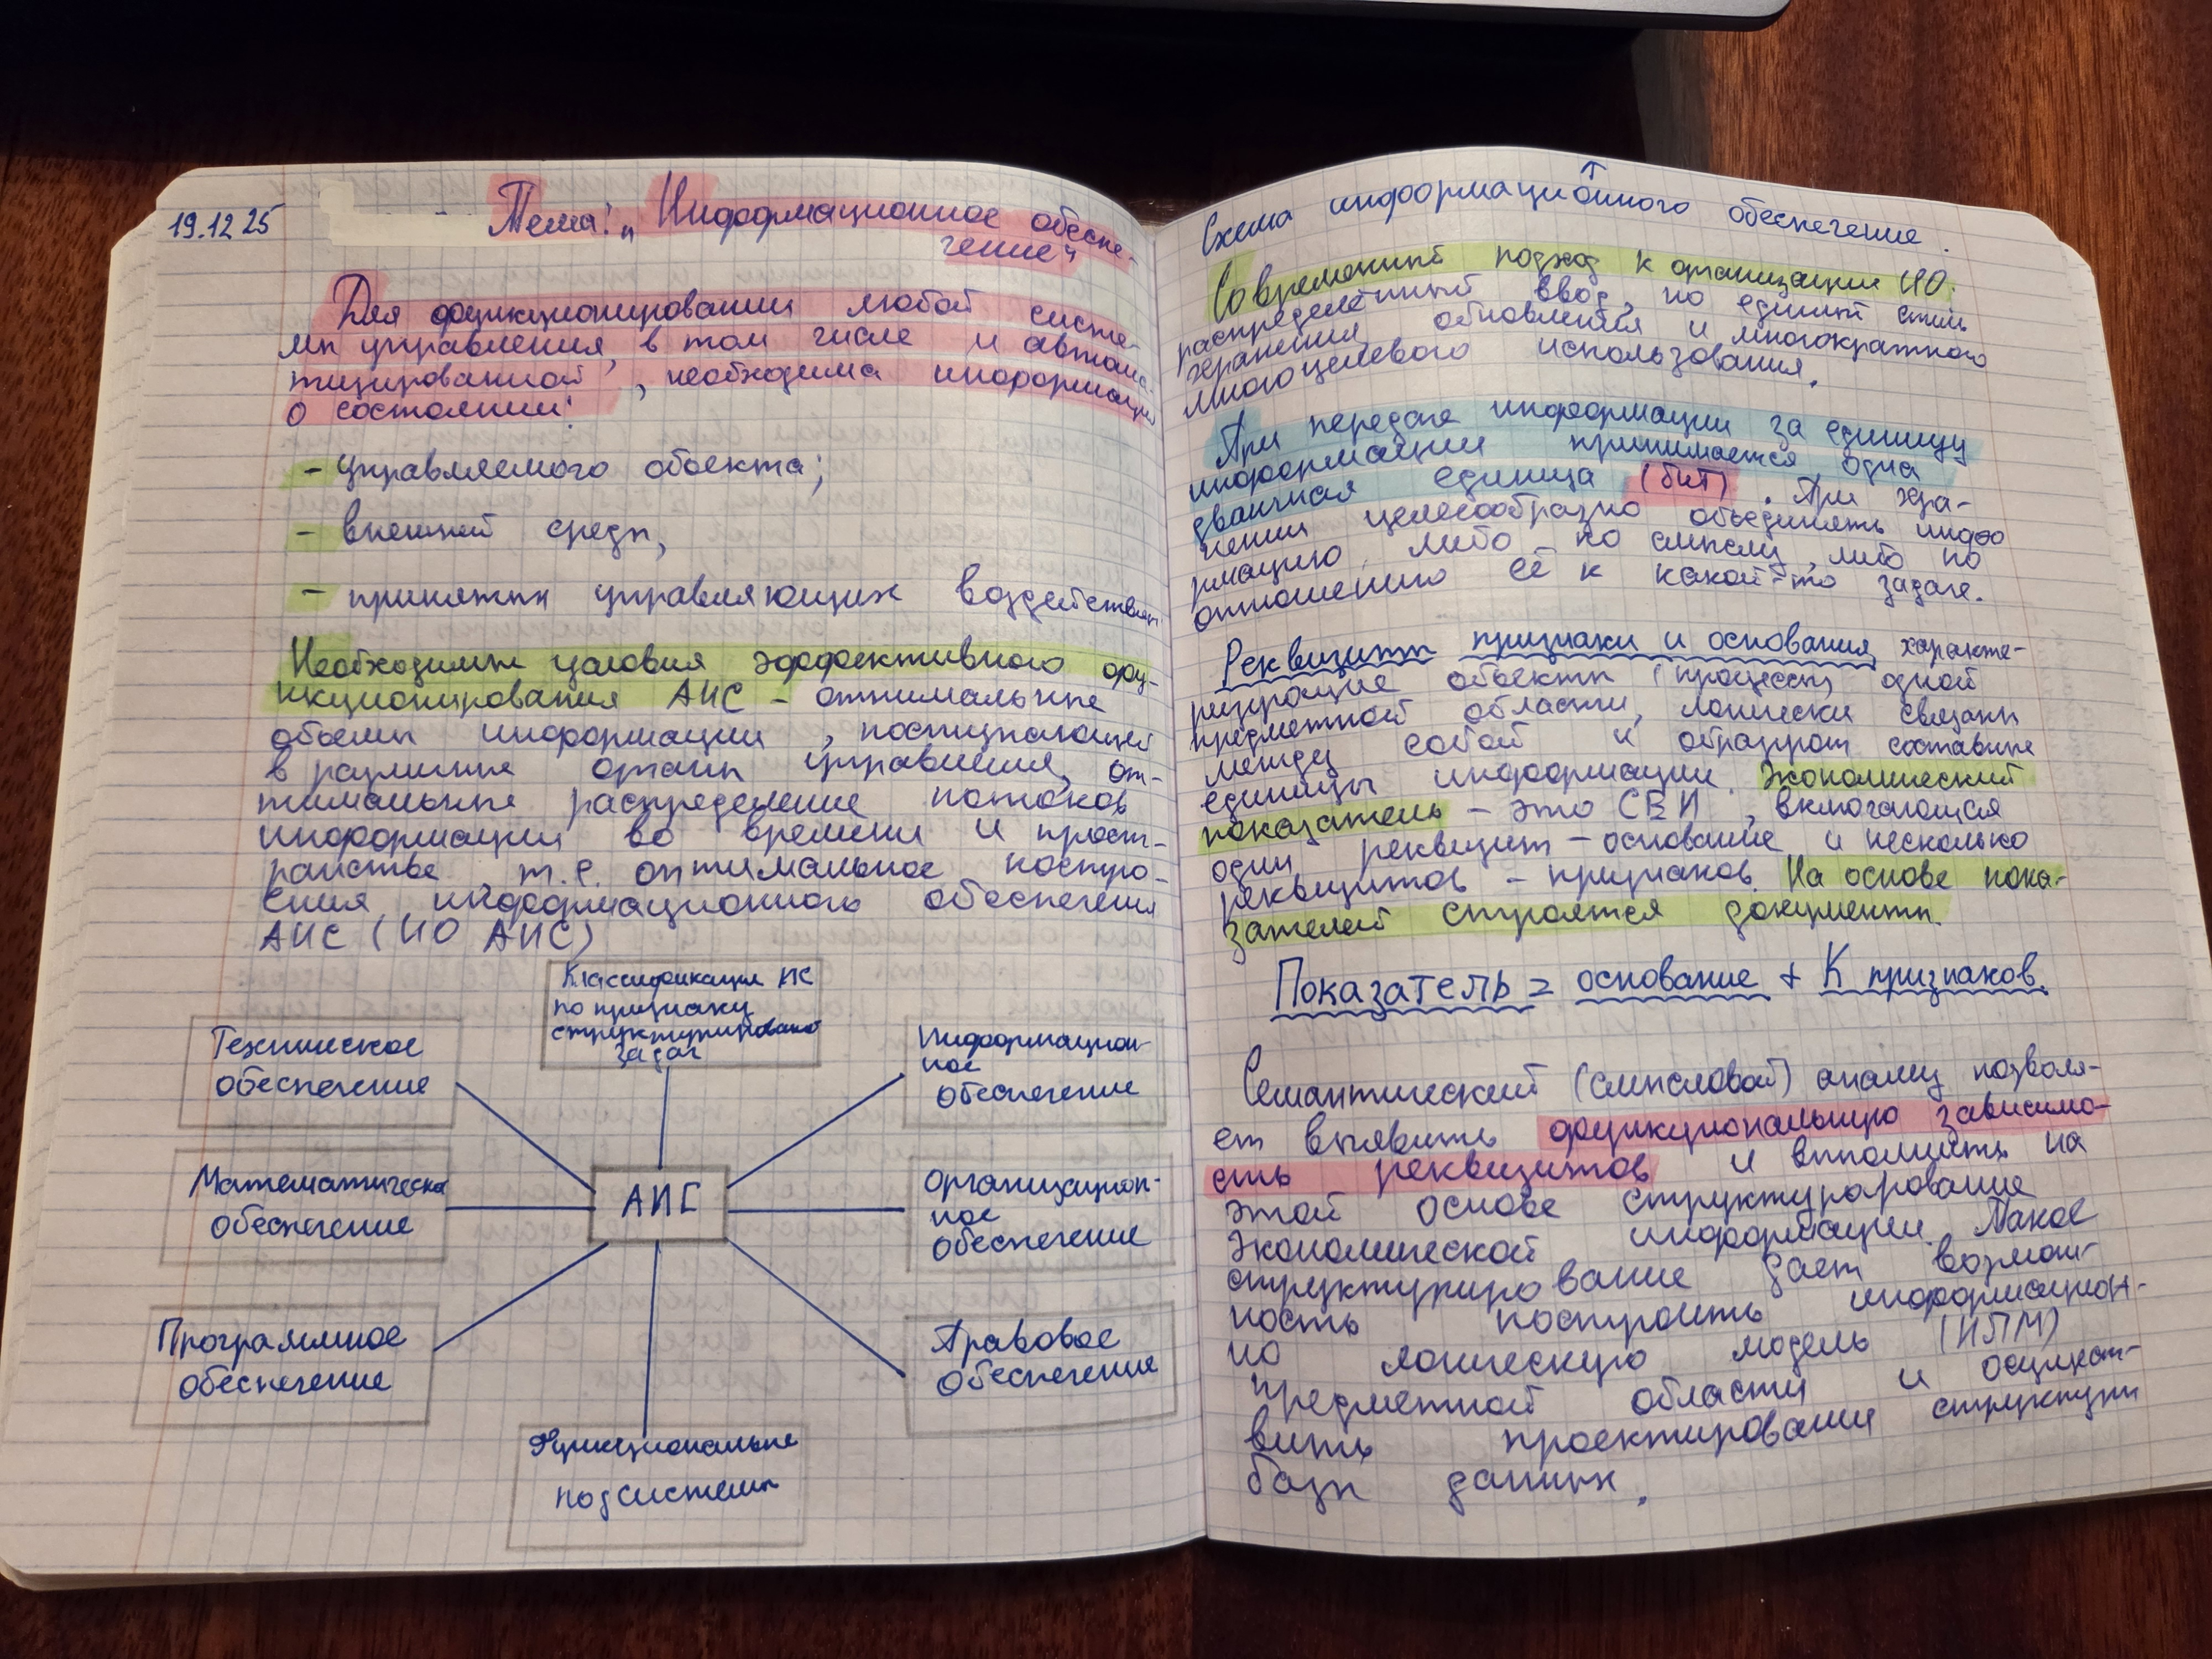 19.12 25
Тема: „Информационное обеспе-
чение"
Для функционировании любой систе-
мы управления, в том числе и автома-
тизированной, необходима информация
о состоянии:
- управляемого объекта;
- внешней среды,
- принятых управляющих воздействиях
Необходимые условия эффективного фу-
нкционирования АИС - оптимальные
объемы информации, поступающей
в различные органы управления, оп-
тимальные распределение потоков
информации во времени и прост-
ранстве т.е. оптимальное постро-
ения информационного обеспечения
АИС (ИО АИС)
Классификация ИС
по признаку
структурировано
задач
Техническое
обеспечение
Информацион-
ное
обеспечение
Математическое
обеспечение
АИС
Организацион-
ное
обеспечение
Программное
обеспечение
Правовое
обеспечение
Функциональные
подсистемы
Схема информационного обеспечение.
Современный подход к организации ИО.
распределённый ввод, но единый стиль
хранения, обновления и многократного
многоцелевого использования.
При передаче информации за единицу
информации принимается одна
двоичная единица (бит). При хра-
нении целесообразно объединять инфо
рмацию либо по смыслу, либо по
отношению её к какой-то задаче.
Реквизиты признаки и основания, характе-
ризующие объекты (процессы) одной
предметной области, логически связаны
между собой и образуют составные
единицы информации. Экономический
показатель - это СЕИ, включающаяся
один реквизит - основание и несколько
реквизитов - признаков. На основе пока-
зателей строятся документы.
Показатель = основание + К признаков.
Семантический (смысловой) анализ позволя-
ет выявить функциональную зависимо-
сть реквизитов и выполнить на
этой основе структурирование
экономической информации. Такое
структурирование дает возмож-
ность построить информацион-
но логическую модель (ИЛМ)
предметной области и осущест-
вить проектирования структуры
базы данных.